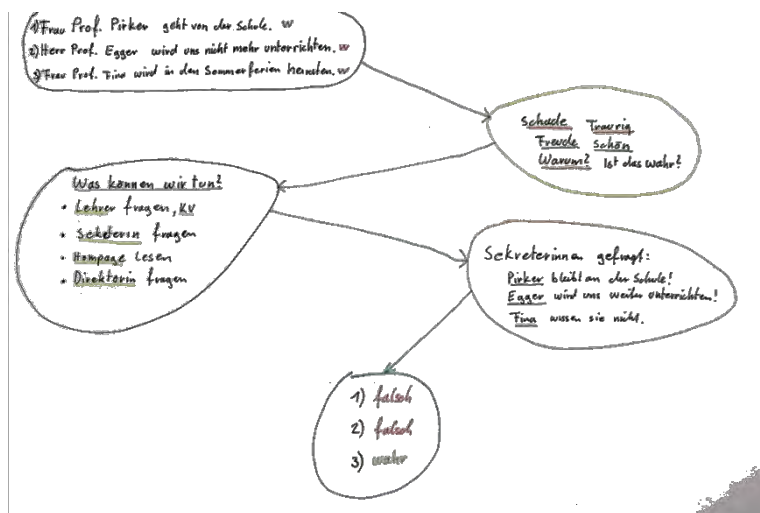 1) Frau Prof. Pirker geht von der Schule. w
2) Herr Prof. Egger wird uns nicht mehr unterrichten. w
3) Frau Prof. Fina wird in den Sommerferien heiraten. w
Schade Traurig
Freude Schön
Warum? Ist das wahr?
Was können wir tun?
• Lehrer fragen, KV
• Seketerin fragen
• Hompage lesen
• Direktorin fragen
Sekreterinnen gefragt:
Pirker bleibt an der Schule!
Egger wird uns weiter unterrichten!
Fina wissen sie nicht.
1) falsch
2) falsch
3) wahr